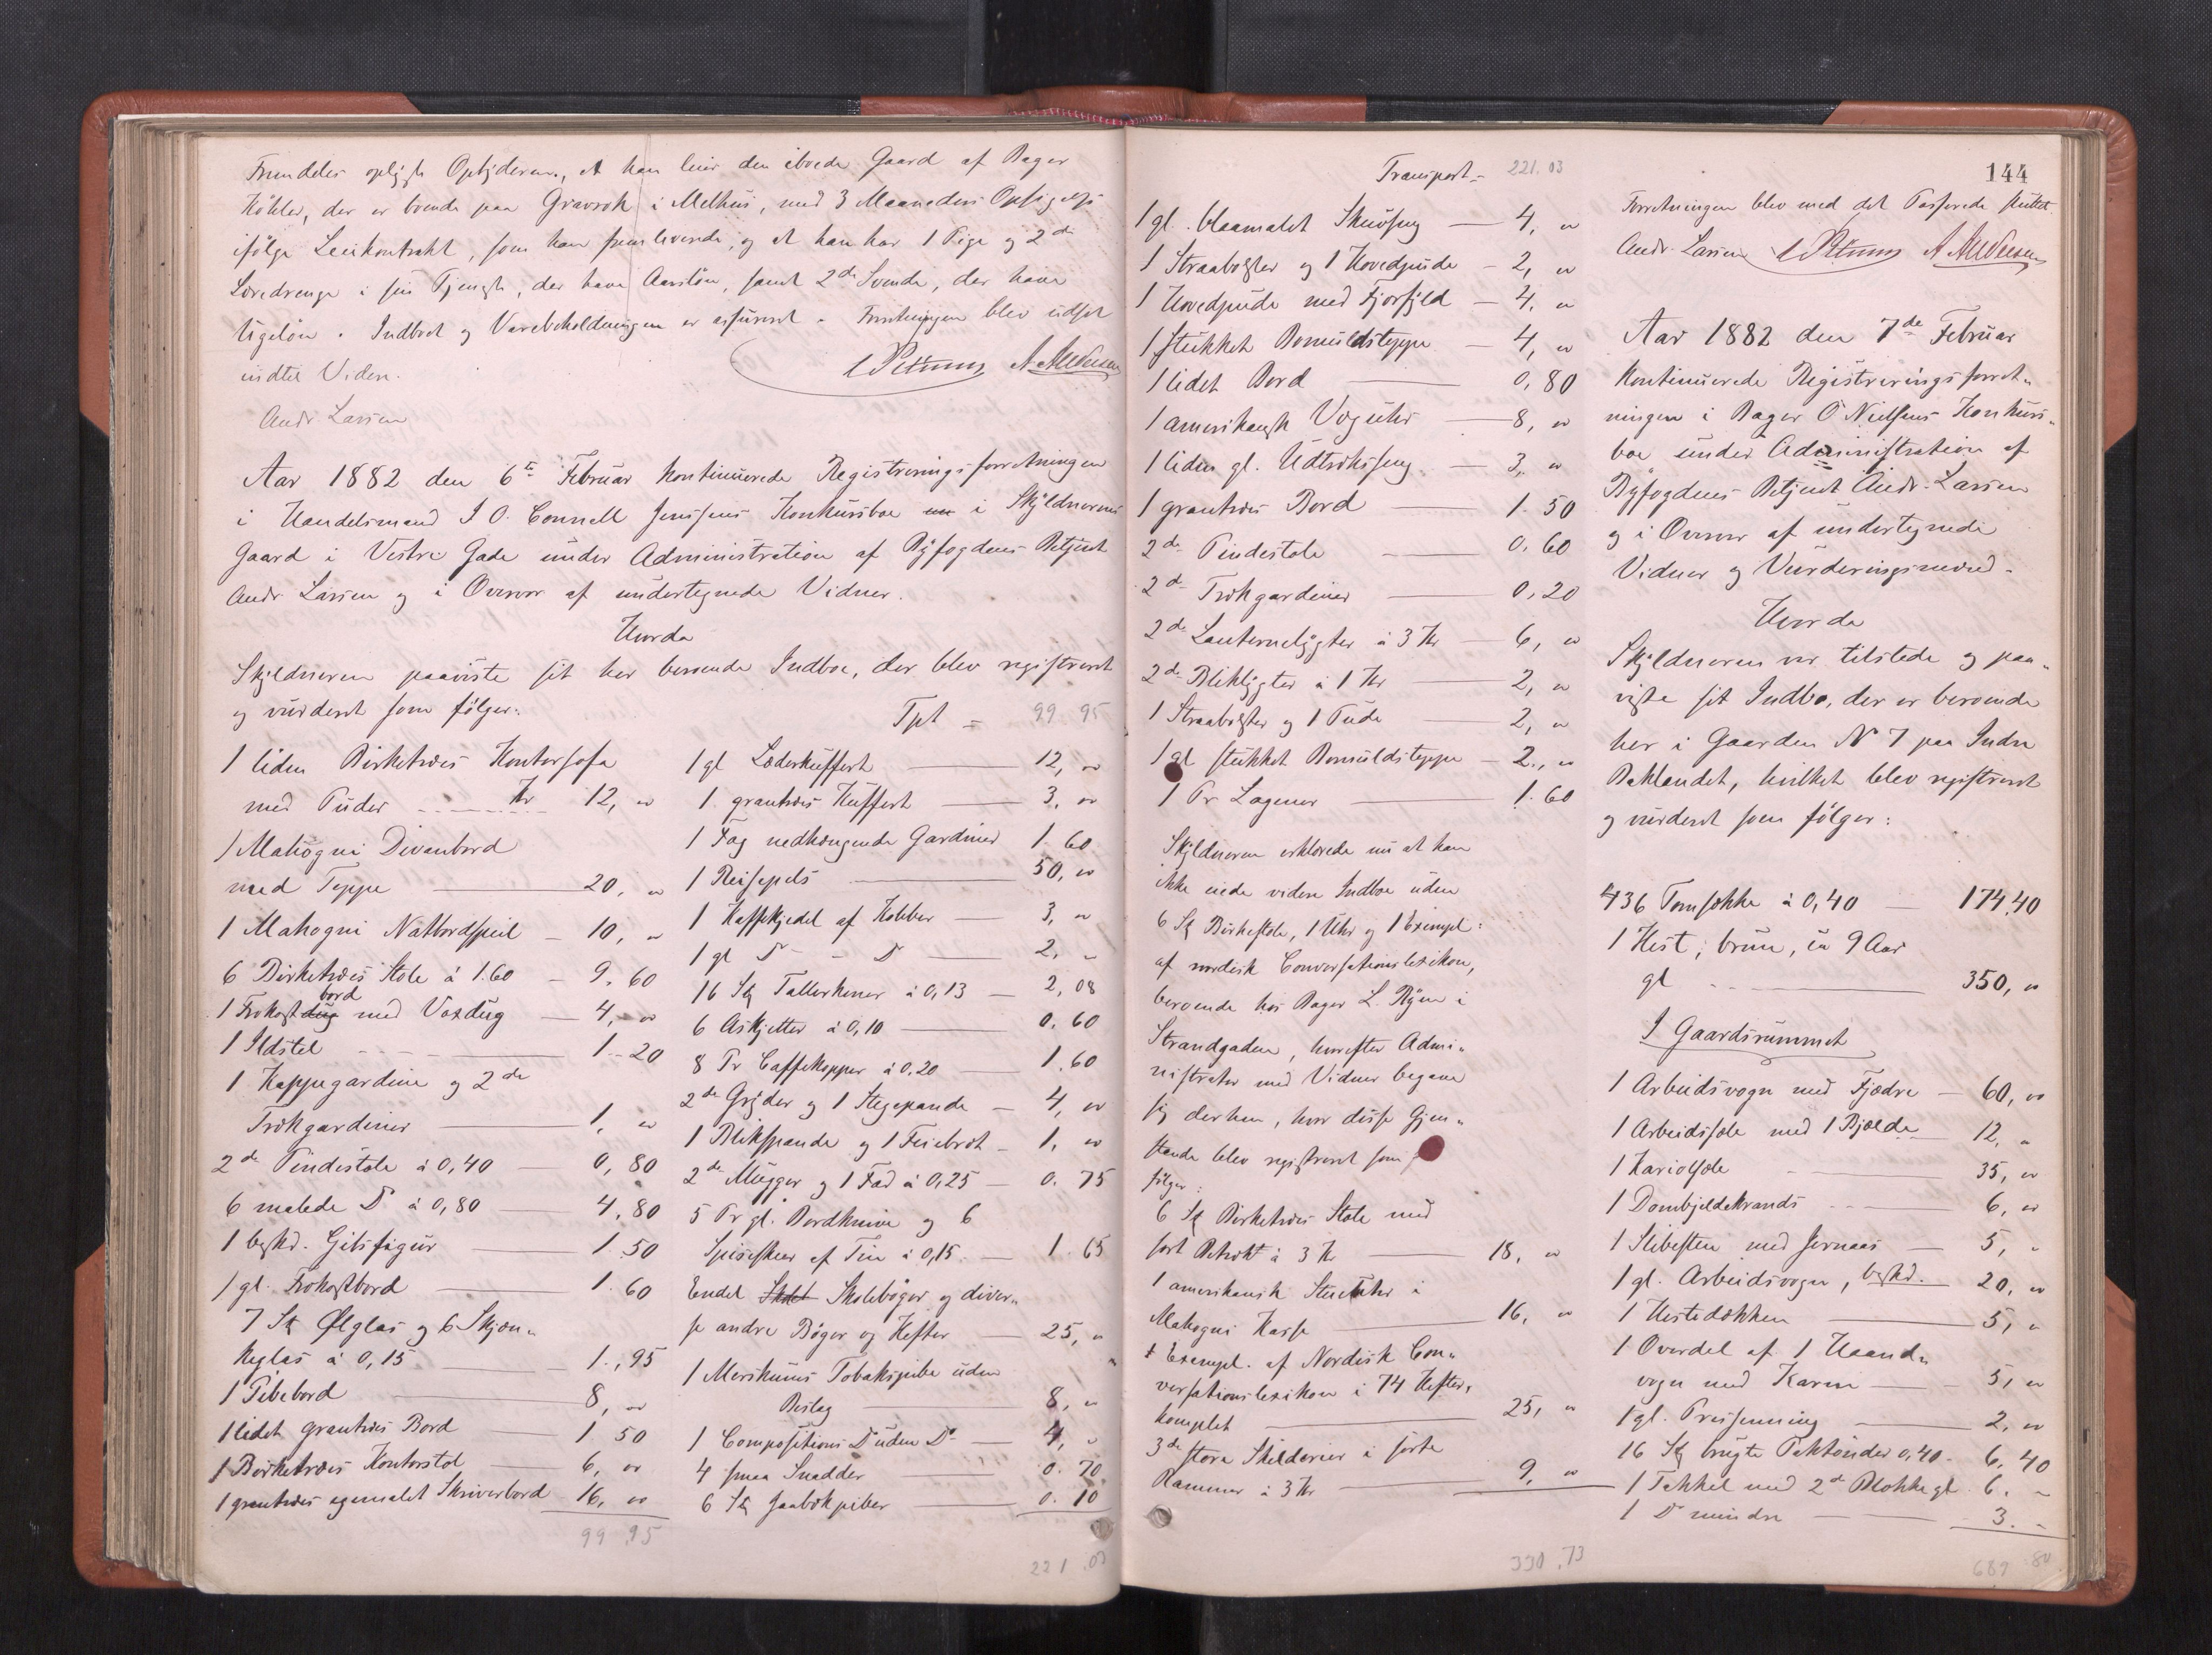 Fremdeles oplyste Opbyderen, at han leier den iboede Gaard af Bager
Köhler, der er boende paa Gravrok i Melhus, med 3 Maaneders Opsigelse
ifölge Leiekontrakt, som han fremleverede, og at han har 1 Pige og 2de
Læredrenge i sin Tjeneste, der have Aarslön, samt 2de Svende, der have
Ugelön. Indboet og Varebeholdningen er assureret. Forretningen blev udsat
indtil Videre.
Andr Larsen
Aar 1882 den 6te Februar kontinuerede Registreringsforretningen
i Handelsmand J O. Connell Jenssens Konkursboe i Skyldnerens
Gaard i Vestre Gade under Administration af Byfogdens Betjent
Andr Larsen og i Overvær af undertegnede Vidner.
Hvorda
Skyldneren paaviste sit her beroende Indboe, der blev registreret
og vurderet som fölger:
1 liden Birketræs Kontorsofa
med Puder Kr 12, "
1 Mahogni Divanbord
med Teppe 20, "
1 Mahogni Natbordspeil 10, "
6 Birketræs Stole à 1.60 9. 60
1 Frokostbord med Voxdug 4, "
1 Ildstel 1. 20
1 Kappegardine og 2de
Trækgardiner 1, "
2de Pindestole à 0,40 0, 80
6 malede Do à 0,80 4, 80
1 beskd. Gibsfigur 1. 50
1 gl. Frokostbord 1. 60
7 Stk Ølglas og 6 Skjæn-
keglas à 0,15 1., 95
1 Pibebord 8, "
1 lidet grantræs Bord 1. 50
1 Birketræs Kontorstol 6, "
1 grantræs egemalet Skriverbord 16, "
99.95
Tpt = 99.95
1 gl Læderkuffert 12, "
1 grantræs Kuffert 3, "
1 Fag nedhængende Gardiner 1. 60
1 Reisepels 50, "
1 Kaffekjedel af Kobber 3, "
1 gl Do - Do 2, "
16 Stk Tallerkener à 0,13 2, 08
6 Asjetter à 0,10 0. 60
8 Pr Caffekopper à 0.20 1. 60
2de Gryder og 1 Stegepande 4, "
1 Blikspande og 1 Feiebræt 1, "
2de Mugger og 1 Fad à 0,25 0. 75
5 Pr gl. Bordknive og 6
Spiseskeer af Tin à 0,15 1. 65
Endel Skolebøger og diver-
se andre Bøger og Hefter 25, "
1 Merskums Tobakspibe uden
Beslag 8, "
1 Compositions Do uden Do 4, "
4 smaa Snadder 0. 70
6 Stk 0. 10
221.03
Transport = 221.03
1 gl. blaamalet Skuvseng 4, "
1 Straabolster og 1 Hovedpude 2, "
1 Hovedpude med Fjærfyld 4, "
1 stukket Bomuldsteppe 4, "
1 lidet Bord 0, 80
1 amerikansk Væguhr 8, "
1 liden gl. Udtræksseng 3, "
1 grantræs Bord 1. 50
2de Pindestole 0. 60
2de Trækgardiner 0, 20
2de Lanternelygter à 3 Kr 6, "
2de Bliklygter à 1 Kr 2, "
1 Straabolster og 1 Pude 2, "
1 gl stukket Bomuldsteppe 2., "
1 Pr Lagener 1. 60
Skyldneren erklærede nu at han
ikke eiede videre Indboe uden
6 Stk Birkestole, 1 Uhr og 1 Exempl:
af nordisk Conversationslexikon,
beroende hos Bager L. Ryen i
Strandgaden, hvorefter Admi-
nistrator med Vidner begave
sig derhen, hvor disse Gjen-
stande blev registreret som
følger:
6 Stk Birketræs Stole med
sort Betræk à 3 Kr 18, "
1 amerikansk Stueuhr i
Mahogni Kasse 16, "
1 Exempl. af Nordisk Con-
versationslexikon i 74 Hefter,
komplet 25, "
3de store Skilderier i sorte
Rammer à 3 Kr 9, "
330.73
144
Forretningen blev med det Passerede sluttet
Andr. Larsen
Aar 1882 den 7de Februar
kontinuerede Registreringsforret-
ningen i Bager O Nielsens Konkurs-
boe under Administration af
Byfogdens Betjent Andr. Larsen
og i Overvær af undertegnede
Vidner og Vurderingsmænd.
Hvorda
Skyldneren var tilstede og paa-
viste sit Indbo, der er beroende
her i Gaarden No 7 paa Indre
Baklandet, hvilket blev registreret
og vurderet som fölger:
436 Tomsække à 0,40 174,40
1 Hest, brun, ca 9 Aar
gl 350, "
I Gaardsrummet
1 Arbeidsvogn med Fjædre 60, "
1 Arbeidssæle med 1 Bjælde 12, "
1 Kariolsæle 35, "
1 Dombjeldekrands 6, "
1 Slibesten med Jernaas 5, "
1 gl. Arbeidsvogn, beskd. 20, "
1 Hestedækken 5, "
1 Overdel af 1 Haand-
vogn med Karm 5, "
1 gl. Presenning 2, "
16 Stk brugte Fisktønder 0,40 6, 40
1 Takkel med 2de Blokke gl 6. "
1 Do mindre 3. "
689.80